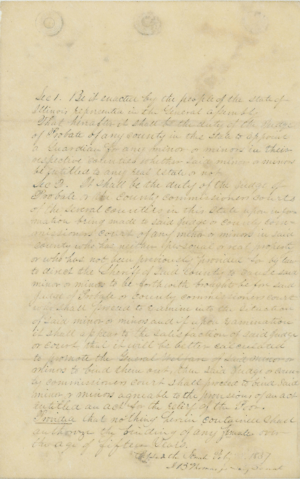 Sec 1. Be it enacted by the people of the State of
Illinois represented in the General Assembly
That hereafter it shall be the duty of the Judge
of Probate of any county in this state to appoint
a Guardian for any minor or minors in their
respective counties whether such minor or minors
be entitled to any real estate or not.
Sec 2. It shall be the duty of the Judge of
Probate or the County Commissioners courts
of the several counties in this State upon
mation being made to said Judge or County
missioners court of any minor or minors in said
county who has neither personal or real property
or who has not been previously provided for by law
to direct the Sheriff of said County to
minor or minors to be forthwith brought before said
Judge of Probate or County commissioners court
shall proceed to examine into the situation
of said minor or minors and if upon examination
it shall appear to the satisfaction of said Judge
or court, that it will be better calculated
to promote the welfare of said minor or
minors to bind them out, then said Judge or
ty commissioners court shall proceed to bind said
minor or minors agreeable to the provisions of an act
entitled an act for the relief of the Poor.
Provided that nothing herein contained shall
authorize the binding of any over
the age of fifteen years